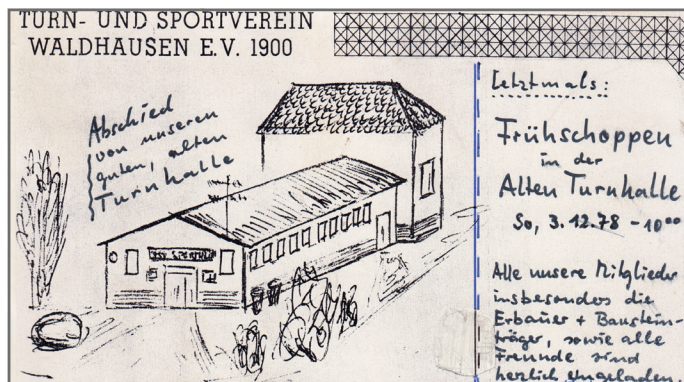 TURN- UND SPORTVEREIN
WALDHAUSEN E.V. 1900
Abschied
von unseren
guten, alten
Turnhalle
letztmals:
Frühschoppen
in der
Alten Turnhalle
So, 3.12.78 - 10°°
Alle unsere Mitglieder
insbesondes die
Erbauer + Baustein-
träger, sowie alle
Freunde sind
herzlich eingeladen.